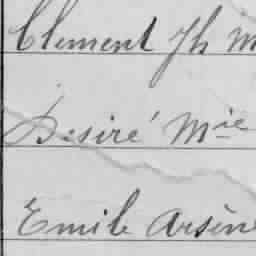 Clement Jh M
Desiré Mie
Emile Arsène